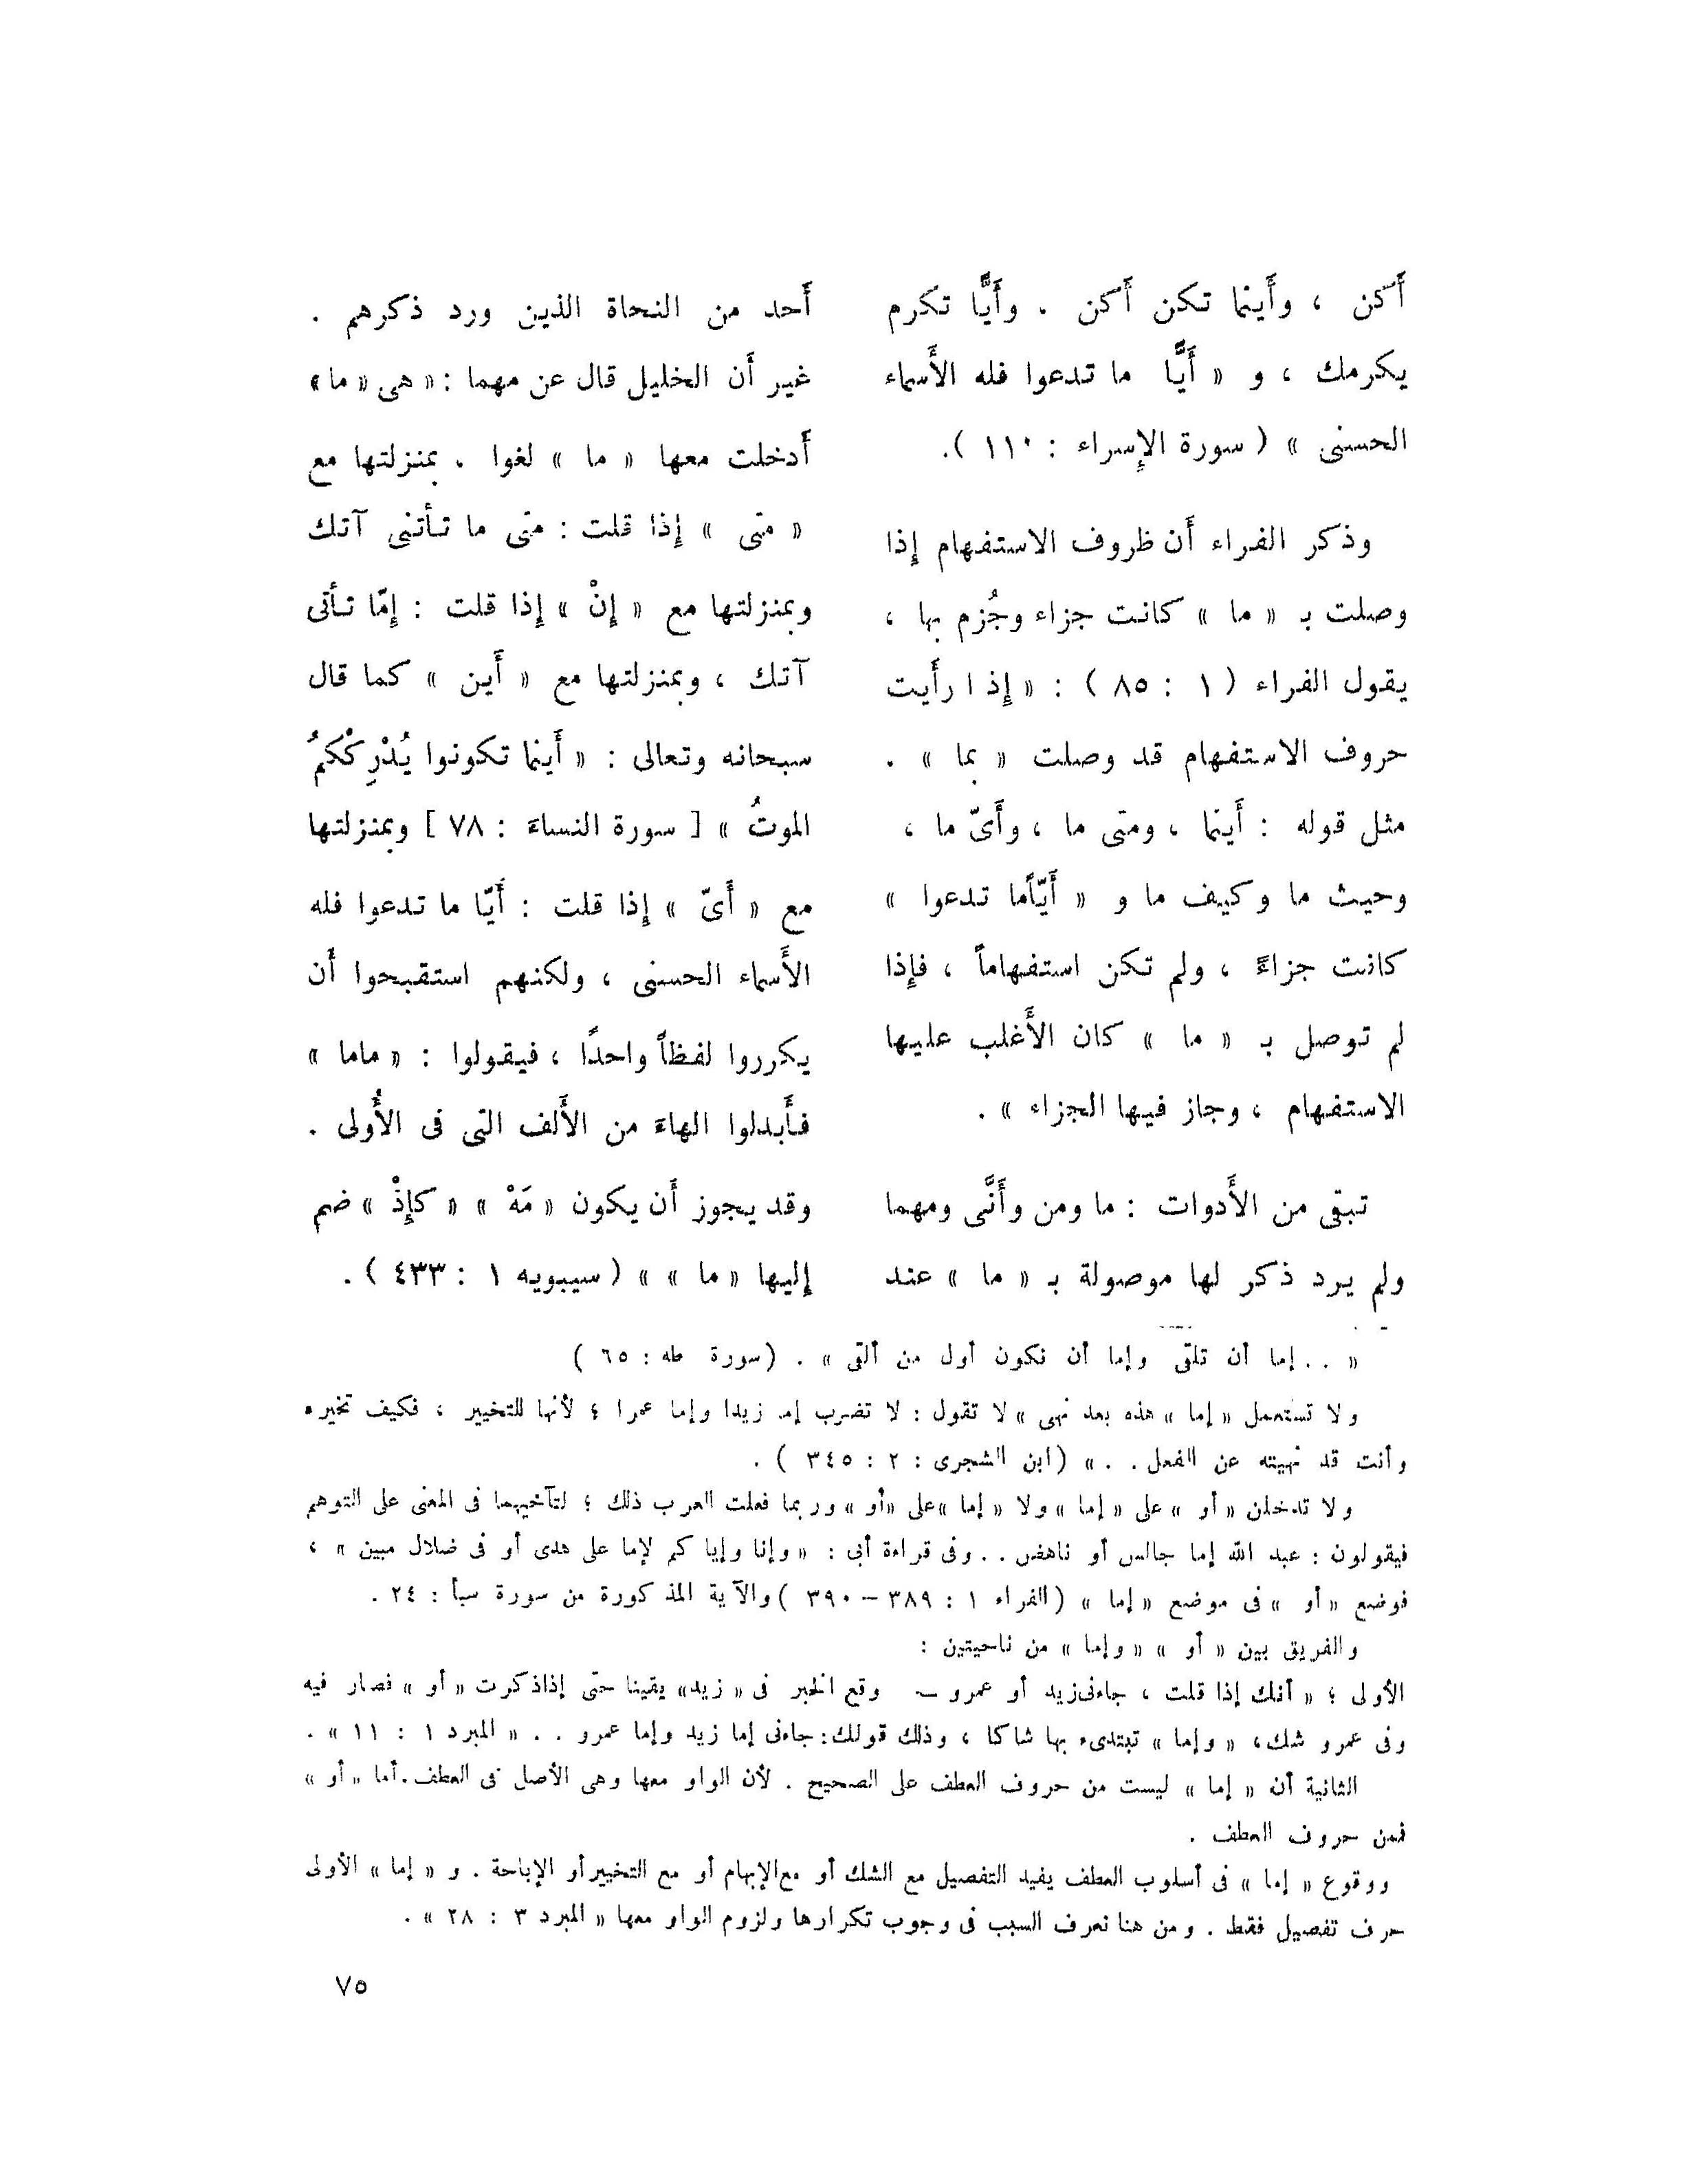 أَكن ، وأَينما تكن أَكن . وأَيًّا تكرم
يكرمك ، و « أَيًّا ما تدعوا فله الأَسماء
الحسنى » ( سورة الإِسراء : ١١٠ ).
وذكر الفراء أَن ظروف الاستفهام إِذا
وصلت بـ « ما » كانت جزاء وجُزم بها ،
يقول الفراء ( ١ : ٨٥ ) : « إِذا رأَيت
حروف الاستفهام قد وصلت « بما » .
مثل قوله : أَينما ، ومتى ما ، وأَىّ ما ،
وحيث ما وكيف ما و « أَيّاًما تدعوا »
كانت جزاءً ، ولم تكن استفهاماً ، فإِذا
لم توصل بـ « ما » كان الأَغلب عليها
الاستفهام ، وجاز فيها الجزاء » .
تبقى من الأَدوات : ما ومن وأَنَّى ومهما
ولم يرد ذكر لها موصولة بـ « ما » عند
أَحد من النحاة الذين ورد ذكرهم .
غير أَن الخليل قال عن مهما : « هى « ما »
أَدخلت معها « ما » لغوا . بمنزلتها مع
« متى » إِذا قلت : متى ما تأتنى آتك
وبمنزلتها مع « إِنْ » إِذا قلت : إِمّا تأتى
آتك ، وبمنزلتها مع « أَين » كما قال
سبحانه وتعالى : « أَينما تكونوا يُدْرِكْكمُ
الموتُ » [ سورة النساءَ : ٧٨ ] وبمنزلتها
مع « أَىّ » إِذا قلت : أَيّا ما تدعوا فله
الأَسماء الحسنى ، ولكنهم استقبحوا أَن
يكرروا لفظاً واحدًا ، فيقولوا : « ماما »
فأَبدلوا الهاءَ من الأَلف التى فى الأُولى .
وقد يجوز أَن يكون « مَهْ » « كإِذْ » ضم
إِليها « ما » » ( سيبويه ١ : ٤٣٣ ) .
« . . إما أن تلقى وإما أن نكون أول من ألقى » . (سورة طه : ٦٥ )
ولا تستعمل « إما » هذه بعد نهى » لا تقول : لا تضرب إما زيدا وإما عمرا ؛ لأنها للتخيير ، فكيف تخيره
وأنت قد نهيته عن الفعل . . » (ابن الشجرى : ٢ : ٣٤٥ ) .
ولا تدخلن « أو » على « إما » ولا « إما »على «أو » وربما فعلت العرب ذلك ؛ لتآخيهما فى المعنى على التوهم
فيقولون : عبد الله إما جالس أو ناهض . . وفى قراءة أبى : « وإنا وإياكم لإما على هدى أو فى ضلال مبين » ،
فوضع « أو » فى موضع « إما » (الفراء ١ : ٣٨٩ – ٣٩٠ ) والآية المذكورة من سورة سبأ : ٢٤ .
والفريق بين « أو » « وإما » من ناحيتين :
الأولى ؛ « أنك إذا قلت ، جاءنى زيد أو عمرو – وقع الخبر فى « زيد» يقينا حتى إذا ذكرت « أو » فصار فيه
وفى عمرو شك، « وإما » تبتدىء بها شاكا ، وذلك قولك: جاءنى إما زيد وإما عمرو . . « المبرد ١ : ١١ » .
الثانية أن « إما » ليست من حروف العطف على الصحيح . لأن الواو معها وهى الأصل فى العطف. أما « أو »
فمن حروف العطف .
ووقوع « إما » فى أسلوب العطف يفيد التفصيل مع الشك أو مع الإبهام أو مع التخيير أو الإباحة . و « إما » الأولى
حرف تفصيل فقط . ومن هنا نعرف السبب فى وجوب تكرارها ولزوم الواو معها « المبرد ٣ : ٢٨ » .
٧٥